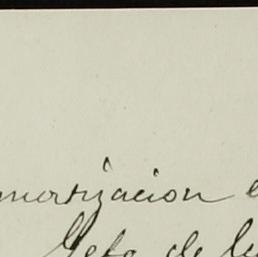 mortizacion
Gefe de